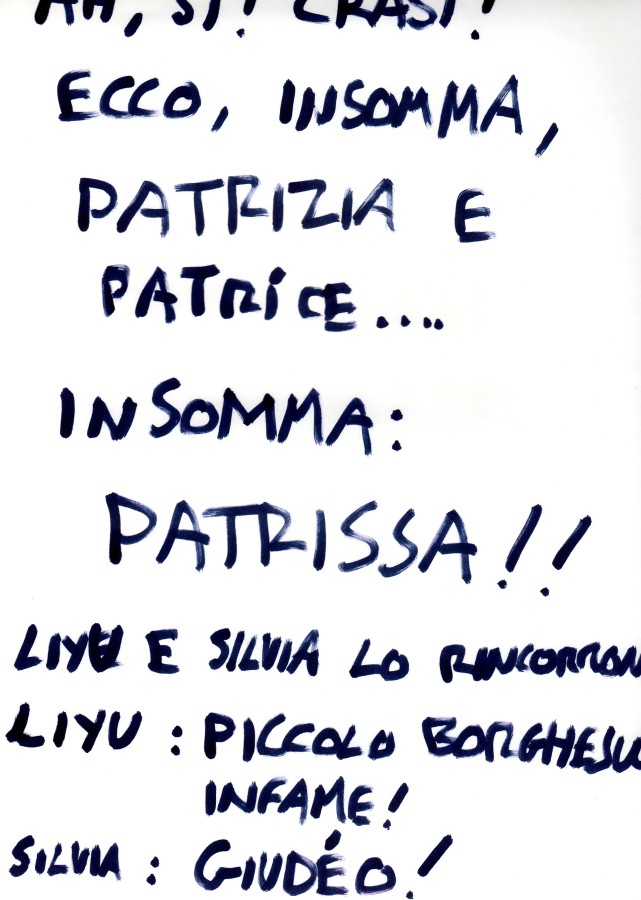 AH, SI! CRASI!
ECCO, INSOMMA,
PATRIZIA E
PATRÍCE....
INSOMMA:
PATRISSA!!
LIYU E SILVIA LO RINCORRON
LIYU : PICCOLO BORGHESUC
INFAME!
SILVIA : GIUDÉO!